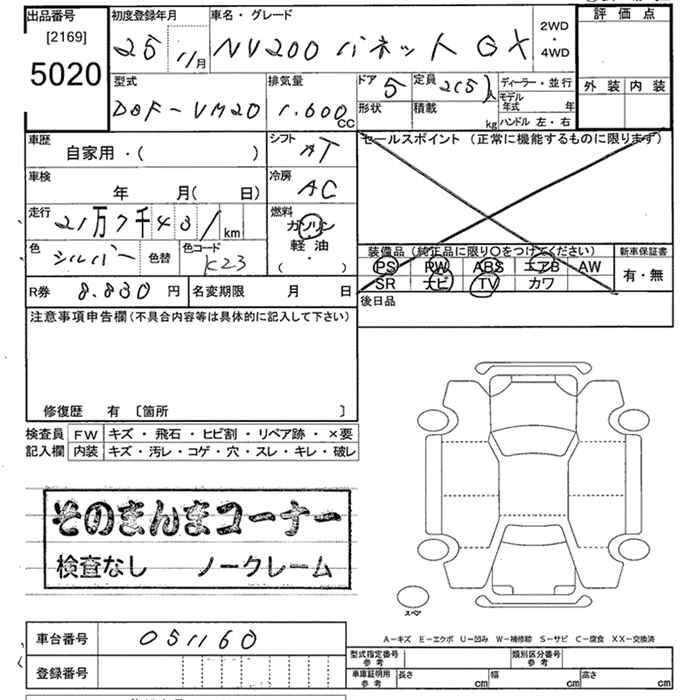 出品番号 初度登録年月 車名・グレード 評価点
[2169] 25 11月 NV200 バネット GX 2WD・4WD
5020 外装 内装
型式 排気量 ドア 5 定員 2(5)人 ディーラー・並行
DBF-VM20 1.600cc 形状 積載 kg モデル年式 年
ハンドル 左・右
車歴 シフト セールスポイント (正常に機能するものに限ります)
自家用・( ) AT
車検 冷房
年 月( 日) AC
走行 燃料
21万7千43 km ガソリン
軽油
( ・ )
色 シルバー 色替 色コード K23
装備品(純正品に限り〇をつけてください) 新車保証書
PS PW ABS エアB AW 有・無
SR ナビ TV カワ
R券 8.830円 名変期限 月 日 後日品
注意事項申告欄(不具合内容等は具体的に記入して下さい)
修復歴 有 〔箇所 〕
検査員 FW キズ・飛石・ヒビ割・リペア跡・×要
記入欄 内装 キズ・汚レ・コゲ・穴・スレ・キレ・破レ
そのまんまコーナー
検査なし ノークレーム
スペア
A-キズ E-エクボ U-凹み W-補修跡 S-サビ C-腐食 XX-交換済
車台番号 051160
登録番号
型式指定番号 参考 類別区分番号 参考
車庫証明用 参考 長さ cm 幅 cm 高さ cm